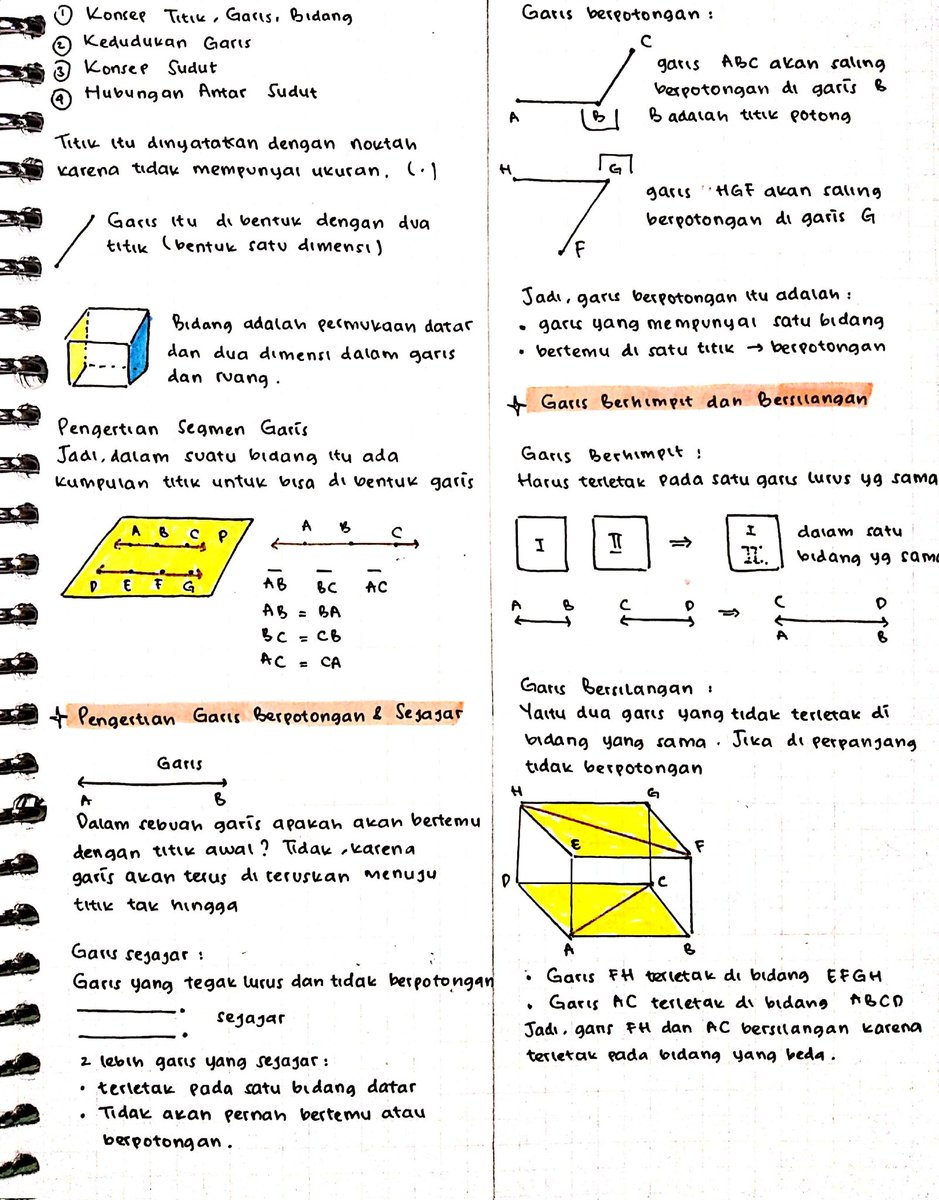 ① Konsep Titik, Garis, Bidang
② Kedudukan Garis
③ Konsep Sudut
④ Hubungan Antar Sudut
Titik itu dinyatakan dengan noktah
karena tidak mempunyai ukuran. (.)
Garis itu di bentuk dengan dua
titik (bentuk satu dimensi)
Bidang adalah permukaan datar
dan dua dimensi dalam garis
dan ruang.
Pengertian Segmen Garis
Jadi, dalam suatu bidang itu ada
kumpulan titik untuk bisa di bentuk garis
A B C P
D E F G
A B C
A̅B̅ B̅C̅ A̅C̅
AB = BA
BC = CB
AC = CA
Pengertian Garis Berpotongan & Sejajar
Garis
A B
Dalam sebuah garis apakah akan bertemu
dengan titik awal? Tidak, karena
garis akan terus di teruskan menuju
titik tak hingga
Garis sejajar :
Garis yang tegak lurus dan tidak berpotongan
sejajar
2 lebih garis yang sejajar :
• terletak pada satu bidang datar
• Tidak akan pernah bertemu atau
berpotongan.
Garis berpotongan :
C
A B
garis ABC akan saling
berpotongan di garis B
B adalah titik potong
H G
F
garis HGF akan saling
berpotongan di garis G
Jadi, garis berpotongan itu adalah :
• garis yang mempunyai satu bidang
• bertemu di satu titik → berpotongan
Garis Berhimpit dan Bersilangan
Garis Berhimpit :
Harus terletak pada satu garis lurus yg sama
I II ⇒ I II. dalam satu
bidang yg sama
A B C D ⇒ C D
A B
Garis Bersilangan :
Yaitu dua garis yang tidak terletak di
bidang yang sama. Jika di perpanjang
tidak berpotongan
H G
E F
D C
A B
• Garis FH terletak di bidang EFGH
• Garis AC terletak di bidang ABCD
Jadi, garis FH dan AC bersilangan karena
terletak pada bidang yang beda.